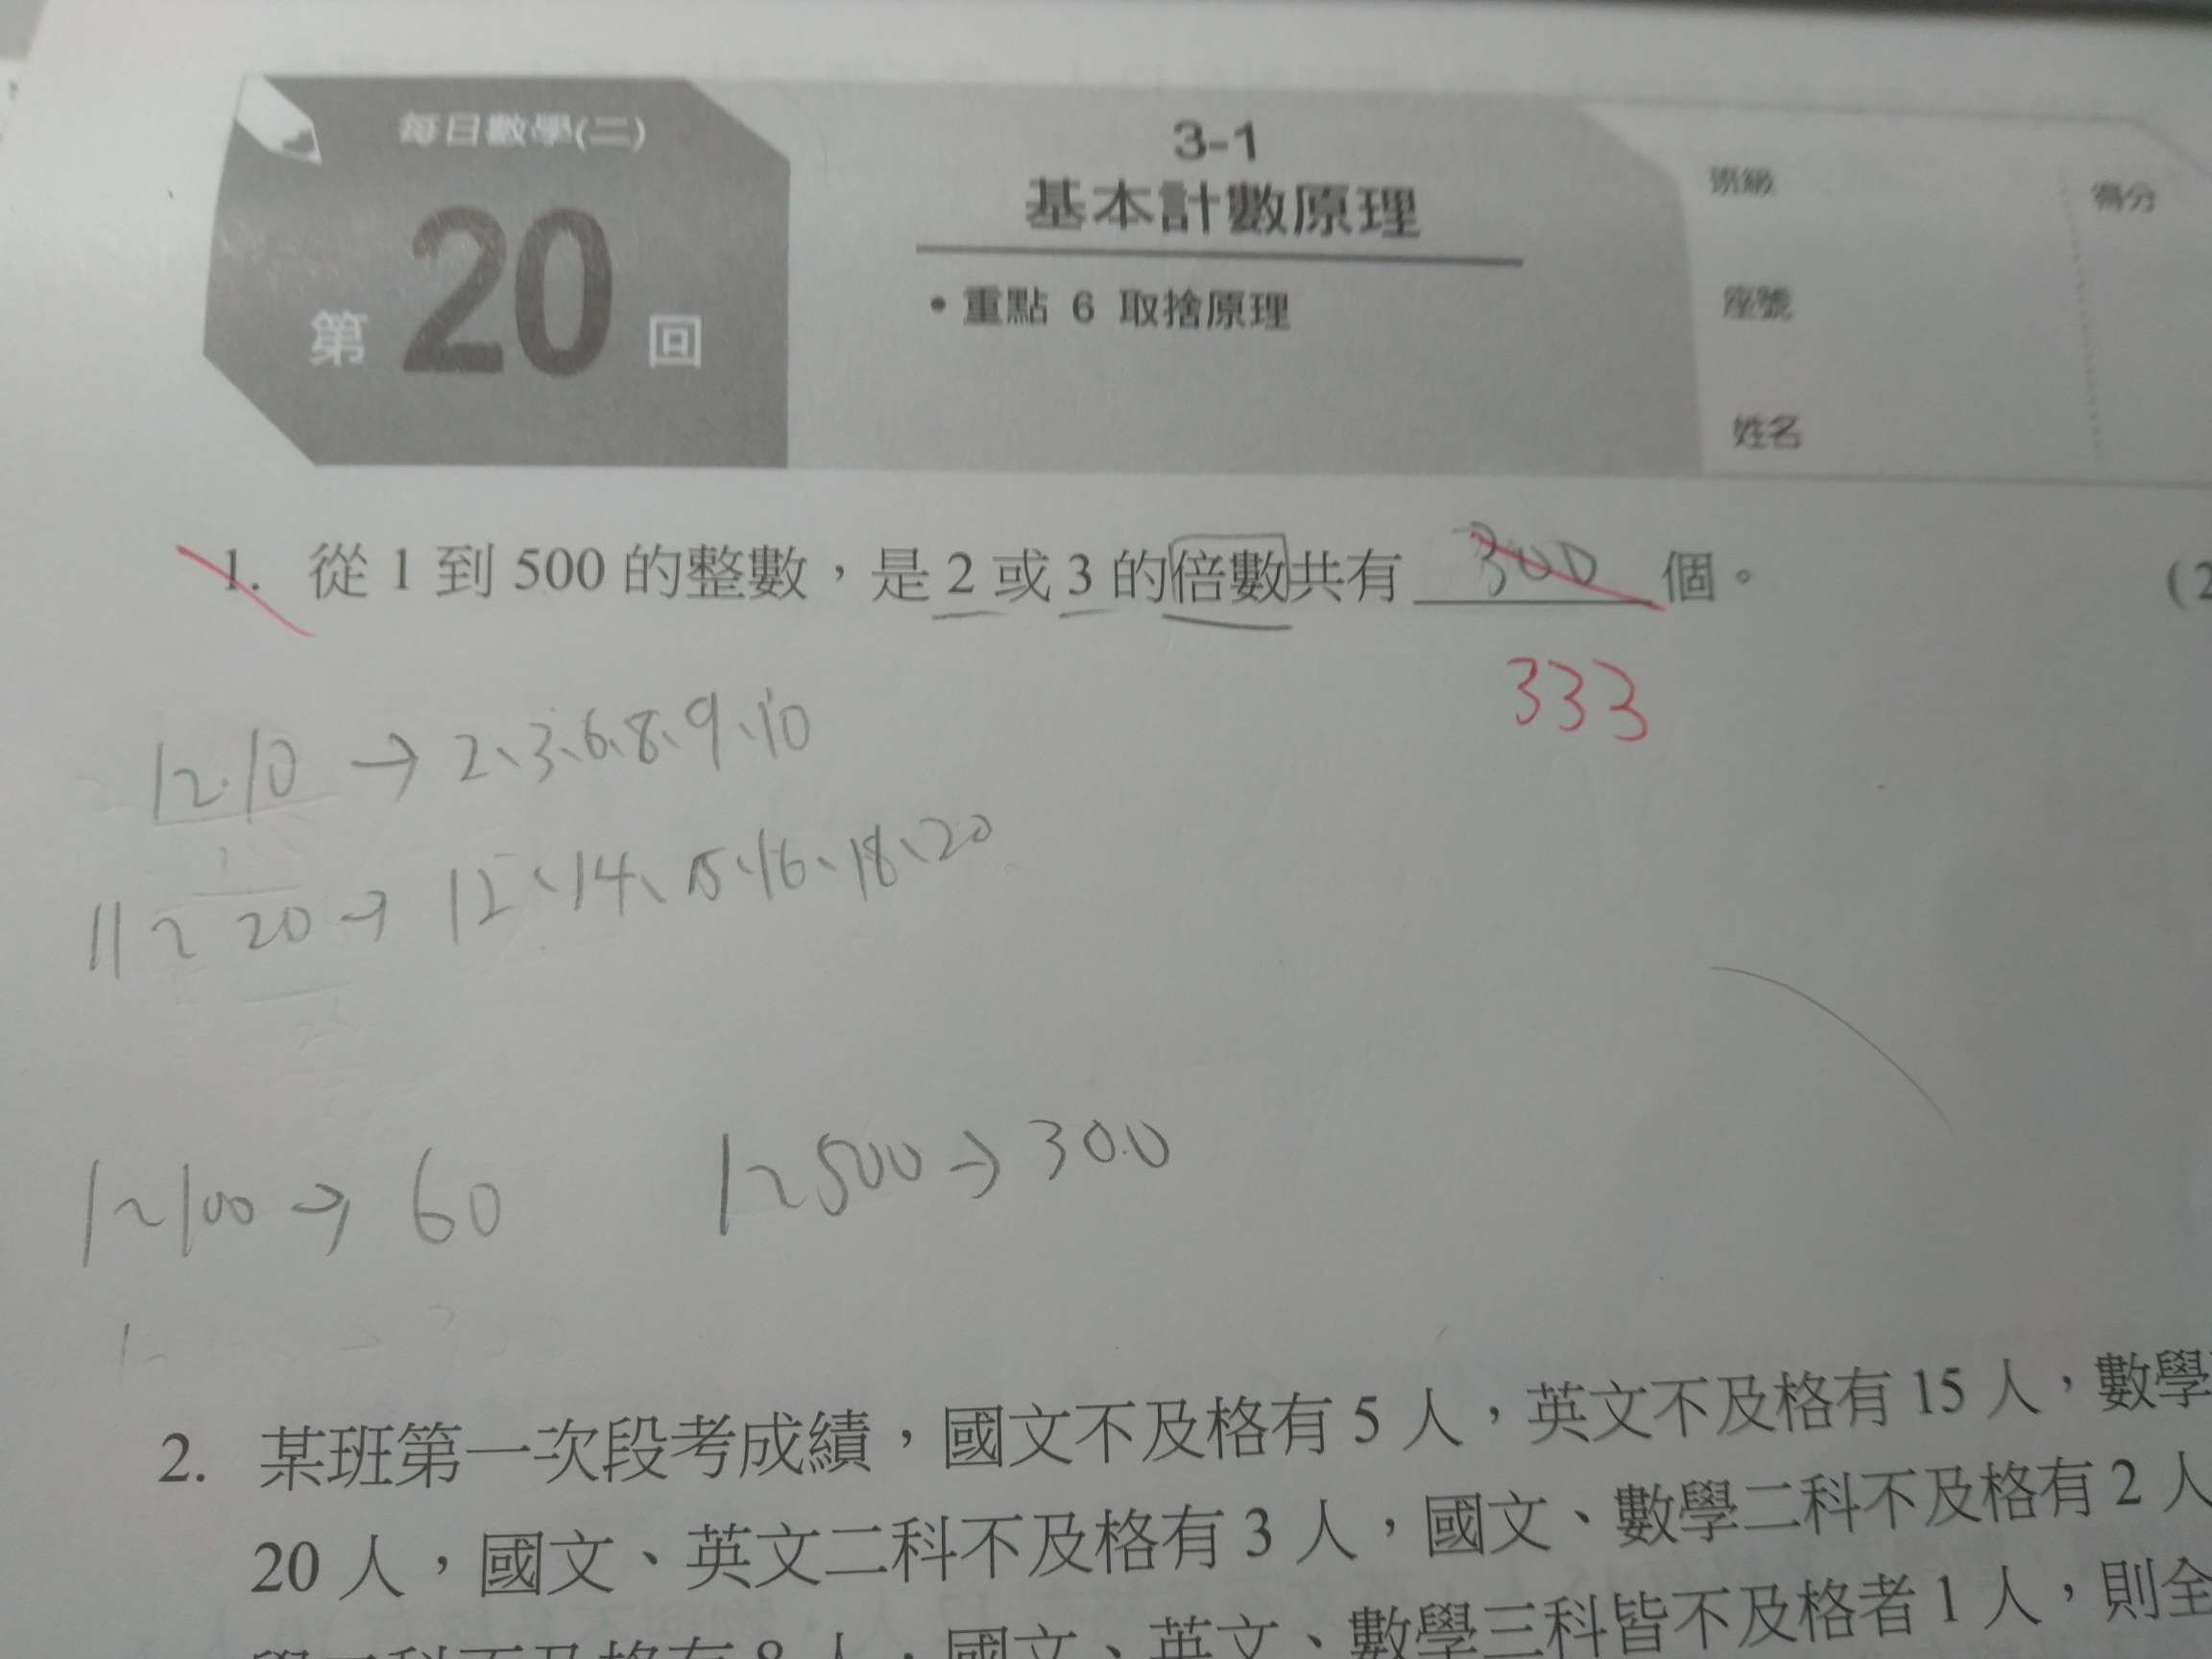 每日數學(二)
第 20 回
3-1
基本計數原理
• 重點 6 取捨原理
班級
得分
座號
姓名
1. 從 1 到 500 的整數，是 2 或 3 的倍數共有 300 個。
(2
333
1~10 → 2、3、6、8、9、10
11~20 → 12、14、15、16、18、20
1~100 → 60
1~500 → 300
2. 某班第一次段考成績，國文不及格有 5 人，英文不及格有 15 人，數學
20 人，國文、英文二科不及格有 3 人，國文、數學二科不及格有 2 人
學二科不及格有 8 人，國文、英文、數學三科皆不及格者 1 人，則全